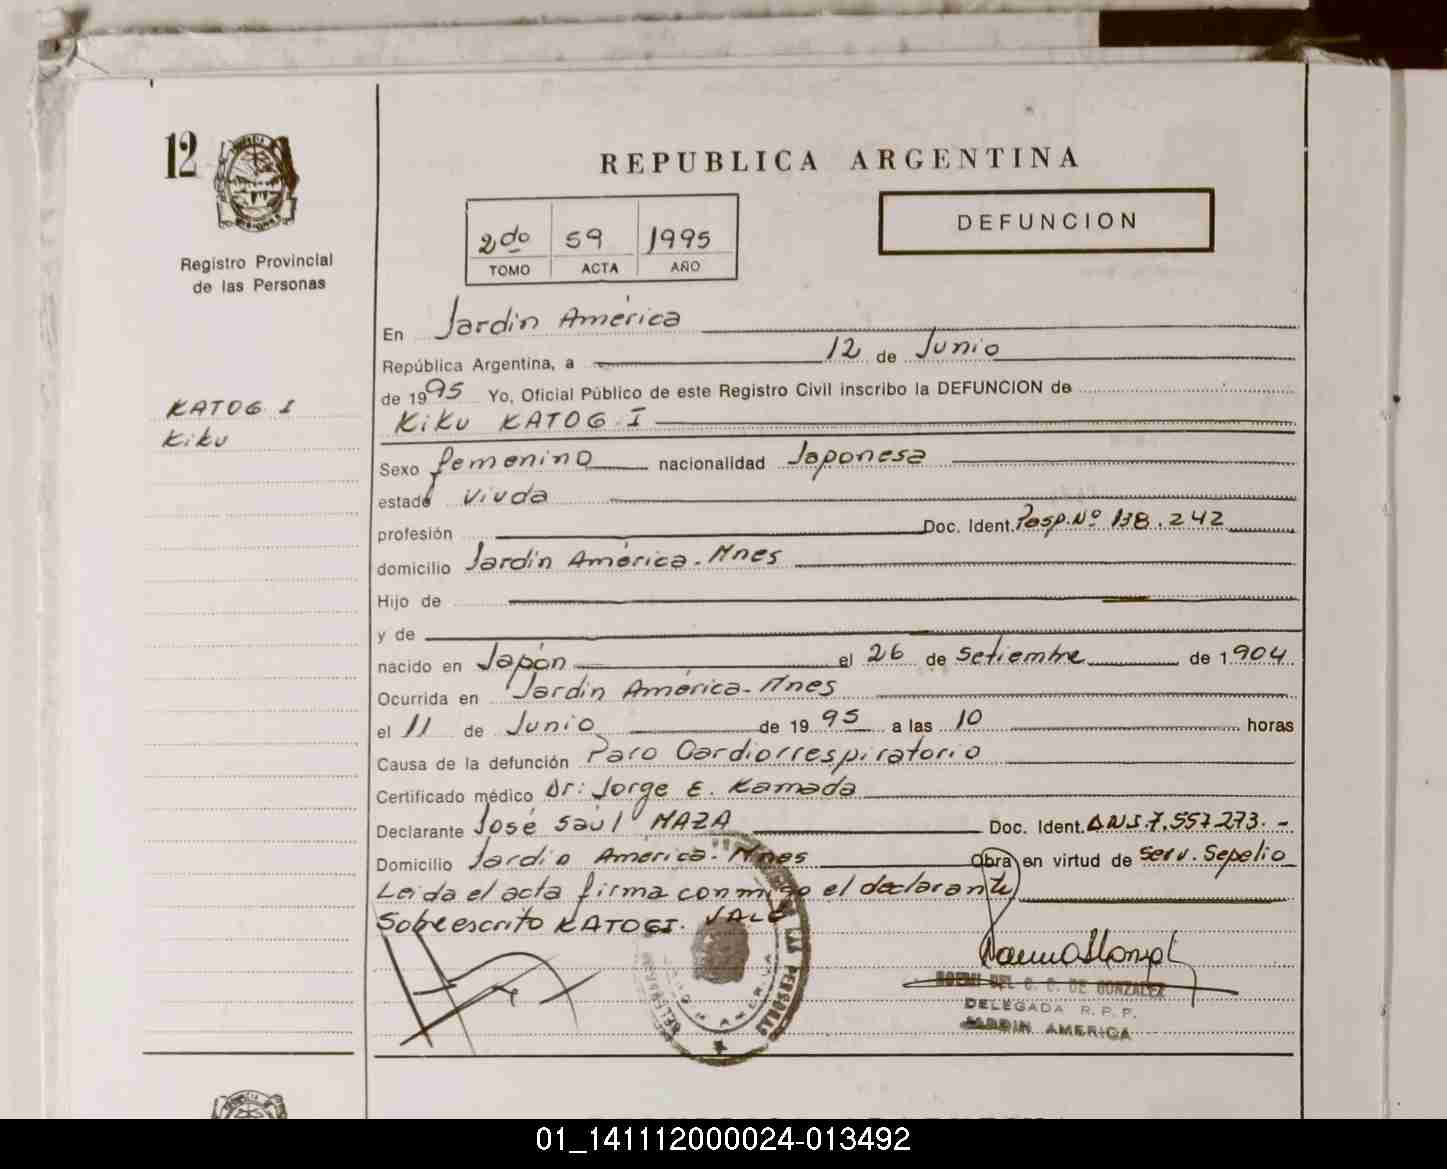 12
Registro Provincial
de las Personas
REPUBLICA ARGENTINA
2do 59 1995
TOMO ACTA AÑO
DEFUNCION
En Jardin América
República Argentina, a 12 de Junio
de 1995 Yo, Oficial Público de este Registro Civil inscribo la DEFUNCION de
KATOG I
Kiku
Kiku KATOG I
Sexo femenino nacionalidad Japonesa
estado viuda
profesión Doc. Ident. Pasp. Nº 138.242
domicilio Jardín América - Mnes
Hijo de
y de
nacido en Japón el 26 de Setiembre de 1904
Ocurrida en Jardín América - Mnes
el 11 de Junio de 1995 a las 10 horas
Causa de la defunción Paro Cardiorrespiratorio
Certificado médico Dr: Jorge E. Kamada
Declarante José Saúl MAZA Doc. Ident. D.N.I. 7.557.273.-
Domicilio Jardín America - Mnes Obra en virtud de Serv. Sepelio
Leida el acta firma conmigo el declarante
Sobreescrito KATOGI. VALE
NOEMI DEL C. C. DE GONZALEZ
DELEGADA R. P. P.
JARDIN AMERICA
01_141112000024-013492